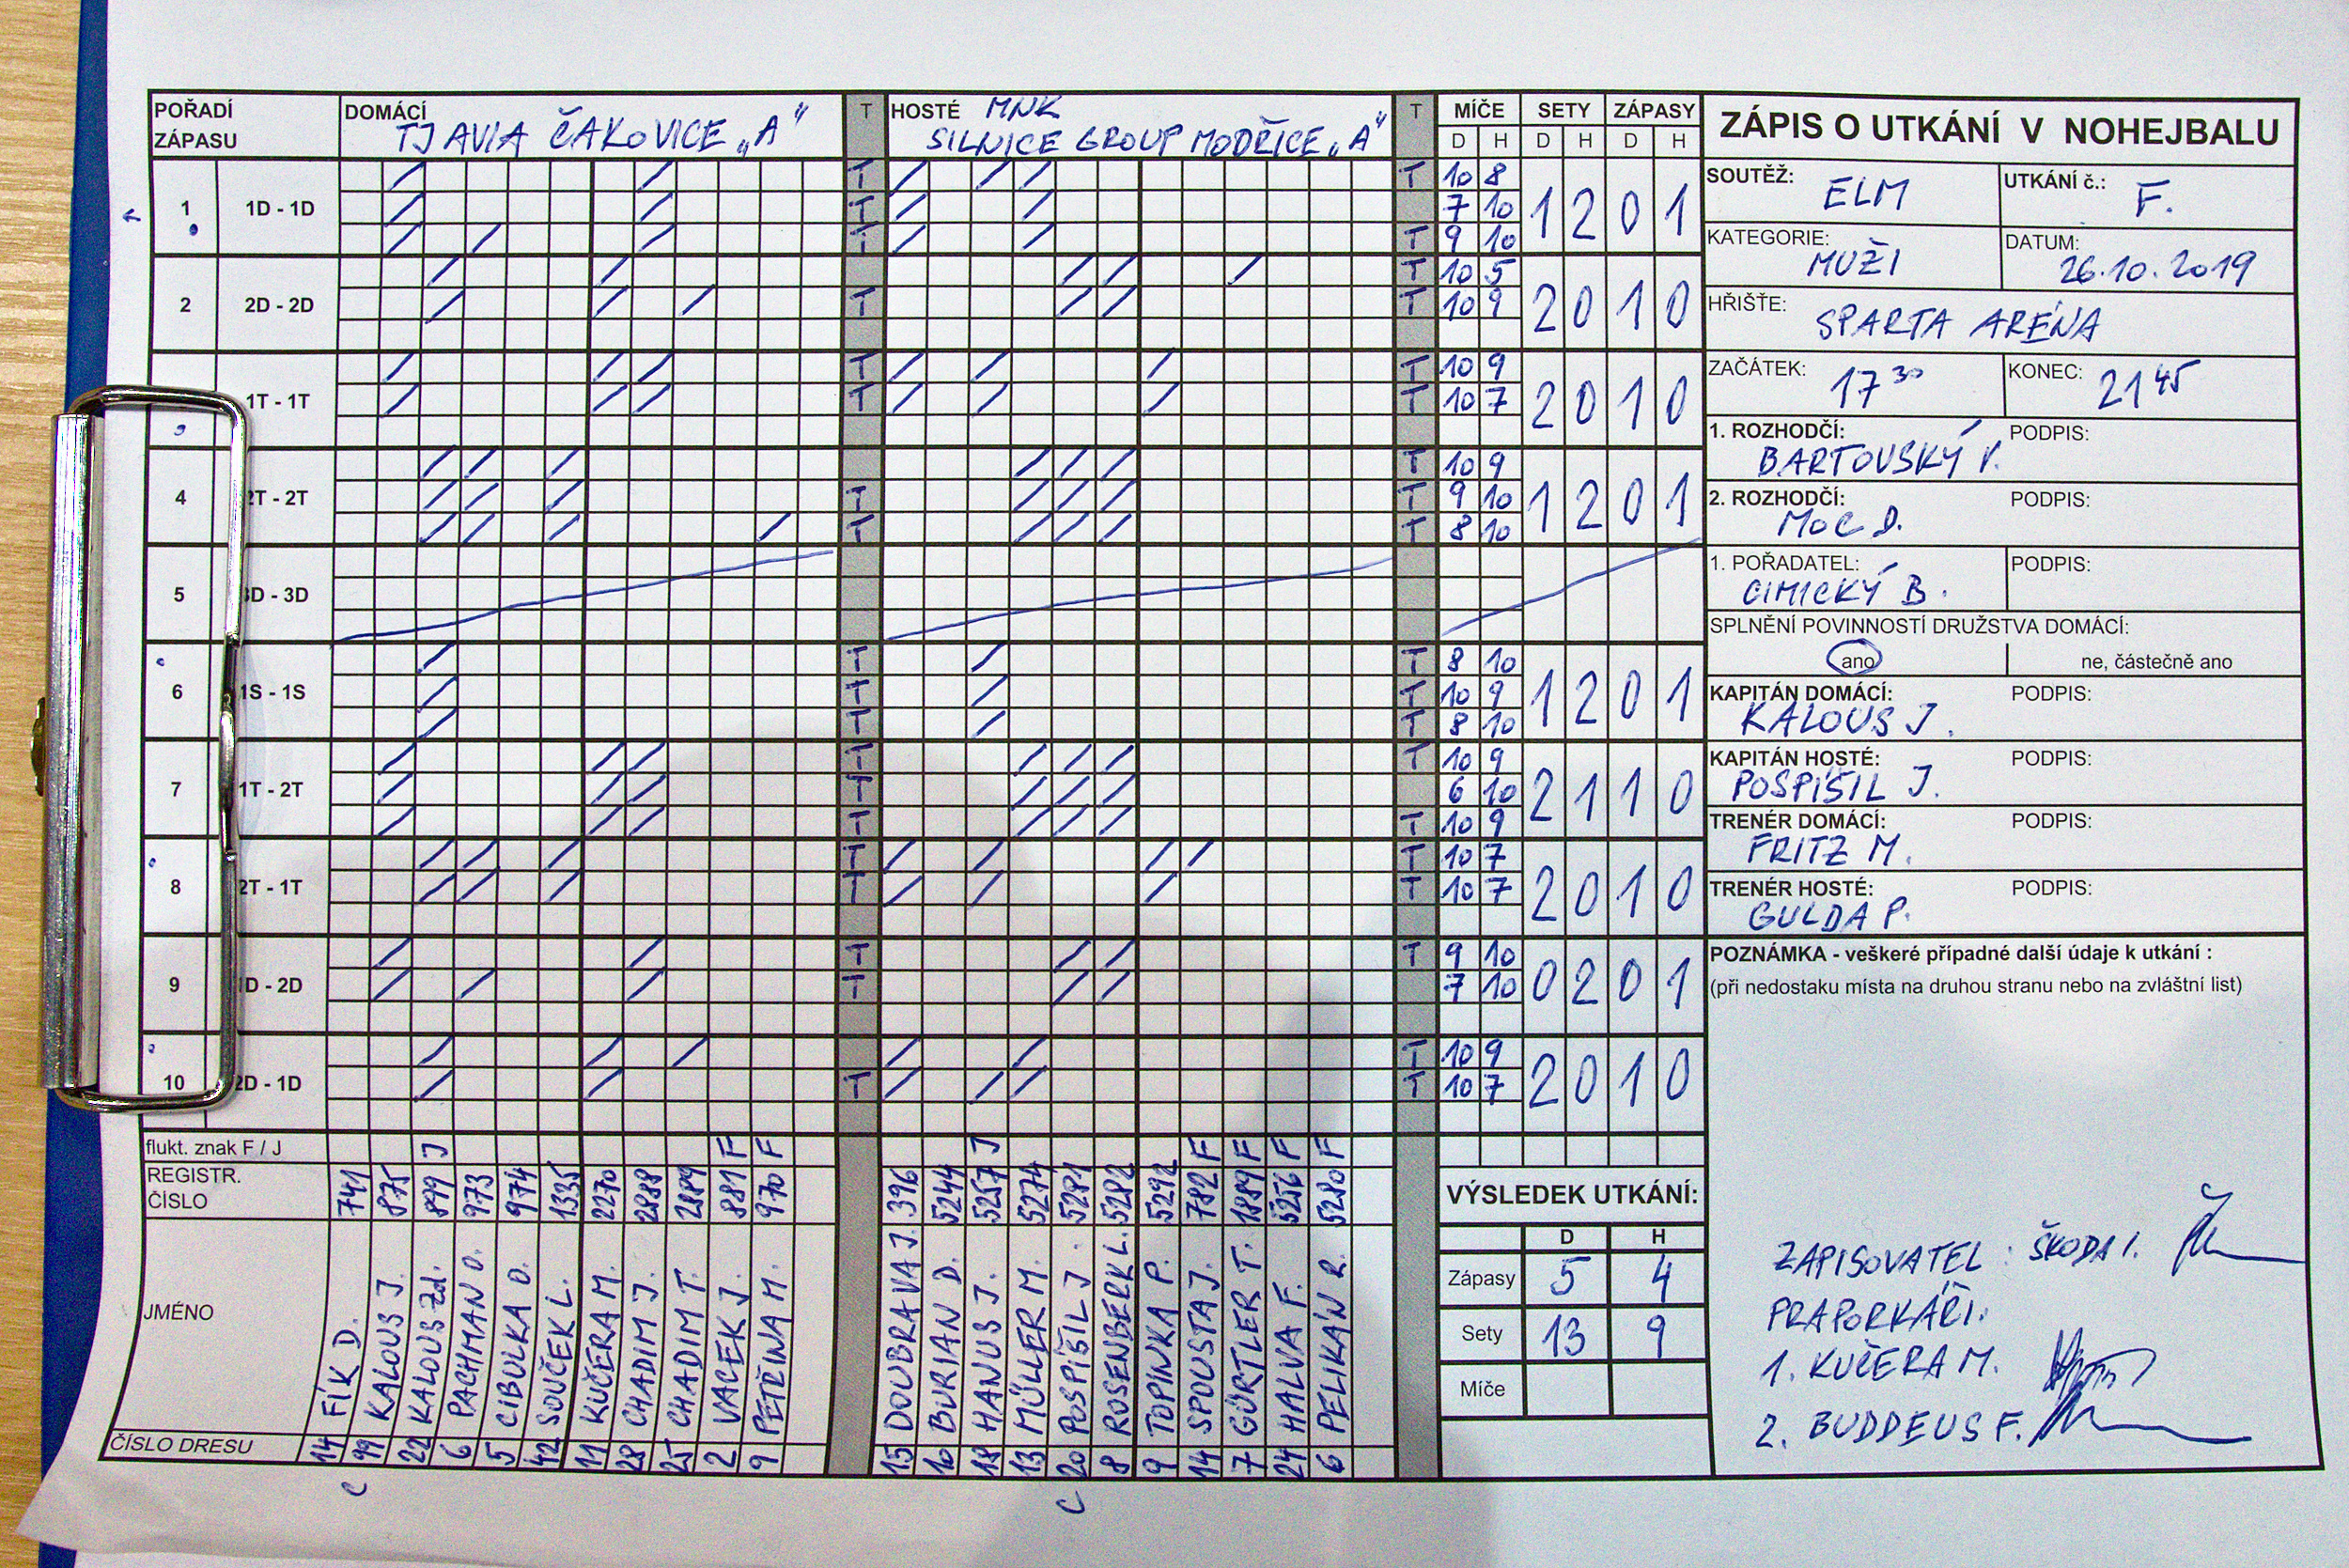 POŘADÍ ZÁPASU
DOMÁCÍ TJ AVIA ČAKOVICE „A"
T
HOSTÉ MNK SILNICE GROUP MODŘICE „A"
T
MÍČE SETY ZÁPASY
D H D H D H
1 1D - 1D T T 10 8 1 2 0 1
T 7 10
T T 9 10
2 2D - 2D T 10 5 2 0 1 0
T T 10 9
1T - 1T T T 10 9 2 0 1 0
T T 10 7
4 2T - 2T T 10 9 1 2 0 1
T T 9 10
T T 8 10
5 3D - 3D
6 1S - 1S T T 8 10 1 2 0 1
T T 10 9
T T 8 10
7 1T - 2T T T 10 9 2 1 1 0
T 6 10
T T 10 9
8 2T - 1T T T 10 7 2 0 1 0
T T 10 7
9 1D - 2D T T 9 10 0 2 0 1
T 7 10
10 2D - 1D T 10 9 2 0 1 0
T T 10 7
flukt. znak F / J J F F J F F F F
REGISTR. ČÍSLO 741 875 899 973 974 1335 2270 2888 2889 881 970 396 5244 5257 5274 5281 5282 5292 782 1889 5256 5280
JMÉNO FÍK D. KALOUS J. KALOUS Zd. PACHMAN O. CIBULKA O. SOUČEK L. KUČERA M. CHADIM J. CHADIM T. VACEK J. PETŘINA M. DOUBRAVA J. BURIAN D. HANUS J. MÜLLER M. POSPÍŠIL J. ROSENBERK L. TOPINKA P. SPOUSTA J. GÜRTLER T. HALVA F. PELIKÁN R.
ČÍSLO DRESU 14 99 22 6 5 42 11 28 25 2 9 15 10 18 13 20 8 9 14 7 24 6
C C
VÝSLEDEK UTKÁNÍ:
D H
Zápasy 5 4
Sety 13 9
Míče
ZÁPIS O UTKÁNÍ V NOHEJBALU
SOUTĚŽ: ELM
UTKÁNÍ č.: F.
KATEGORIE: MUŽI
DATUM: 26.10.2019
HŘIŠTE: SPARTA ARÉNA
ZAČÁTEK: 17 30
KONEC: 21 45
1. ROZHODČÍ: BARTOVSKÝ V.
PODPIS:
2. ROZHODČÍ: MOC D.
PODPIS:
1. POŘADATEL: CIMICKÝ B.
PODPIS:
SPLNĚNÍ POVINNOSTÍ DRUŽSTVA DOMÁCÍ:
ano ne, částečně ano
KAPITÁN DOMÁCÍ: KALOUS J.
PODPIS:
KAPITÁN HOSTÉ: POSPÍŠIL J.
PODPIS:
TRENÉR DOMÁCÍ: FRITZ M.
PODPIS:
TRENÉR HOSTÉ: GULDA P.
PODPIS:
POZNÁMKA - veškeré případné další údaje k utkání :
(při nedostaku místa na druhou stranu nebo na zvláštní list)
ZAPISOVATEL: ŠKODA I.
PRAPORKÁŘI:
1. KUČERA M.
2. BUDDEUS F.